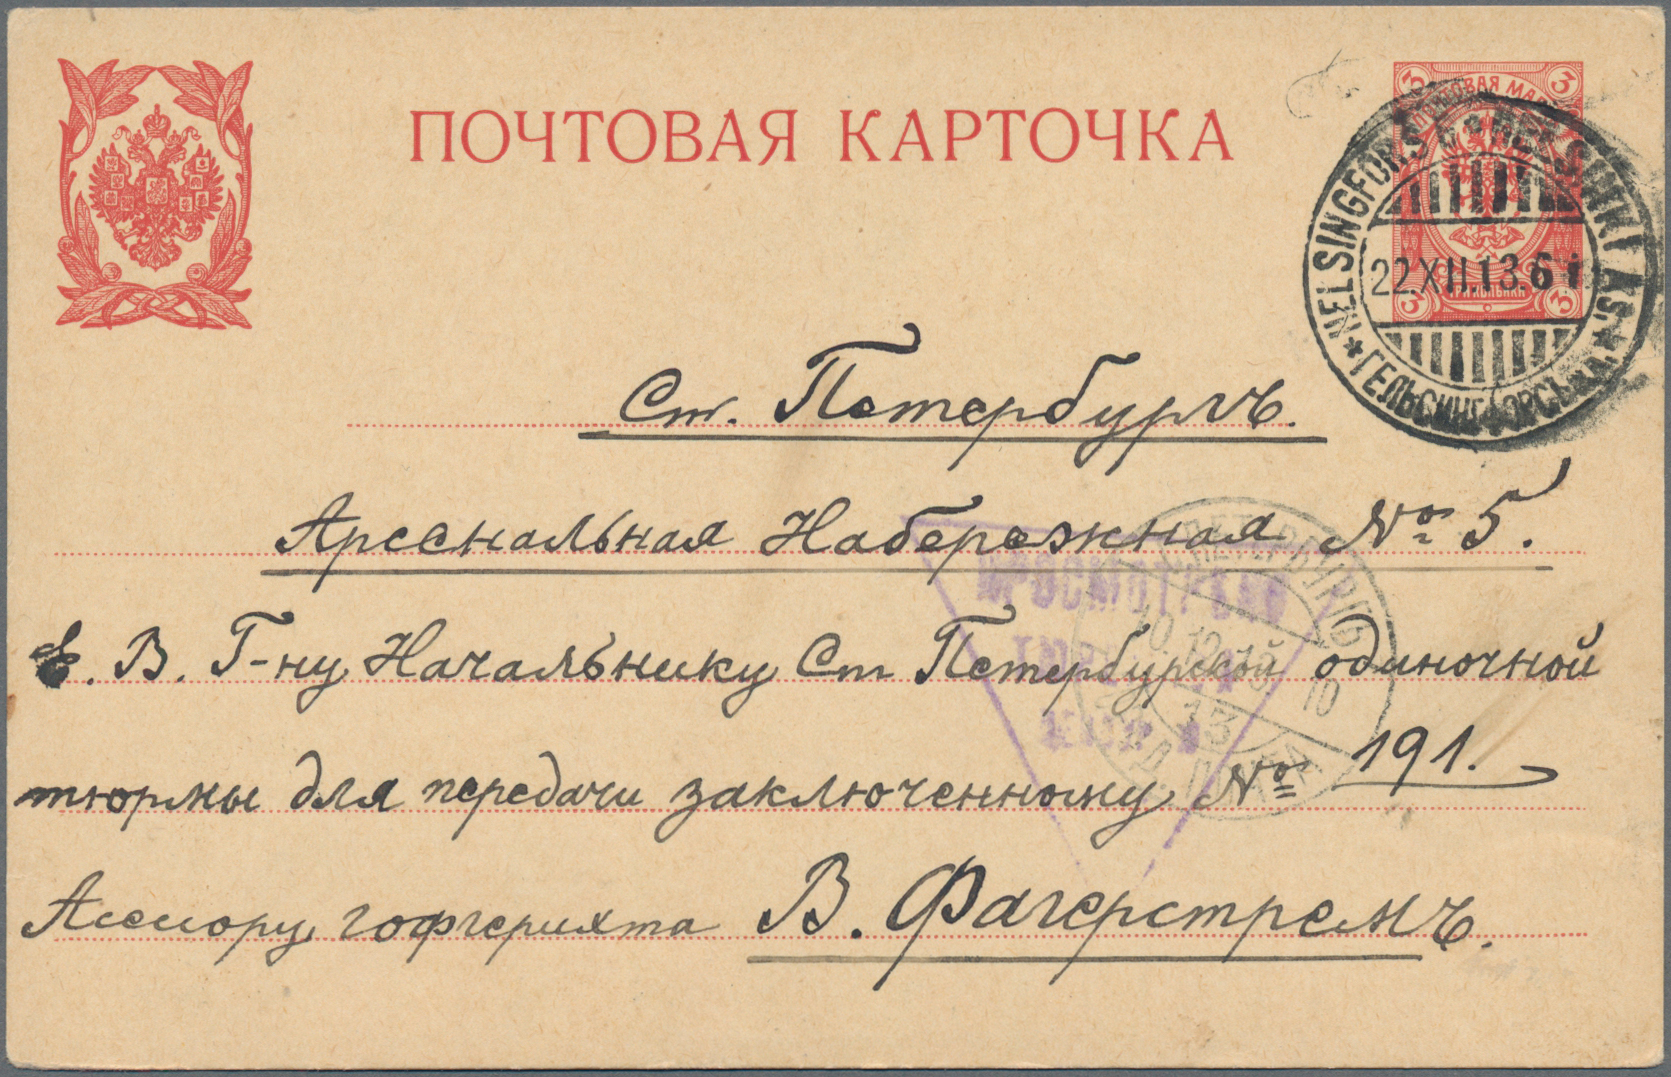 ПОЧТОВАЯ КАРТОЧКА
3 ПОЧТОВАЯ МАРКА 3
3 ТРИ КОПѢЙКИ 3
HELSINGFORS * HELSINKI AS.
22.XII.13. 6 i
* ГЕЛЬСИНГФОРСЪ *
Ст. Петербургъ.
Арсенальная Набережная № 5.
Е. В. Г-ну Начальнику Ст Петербурской одиночной
тюрмы для передачи заключенному № 191.
Асессору гофгерихта В. Фагерстремъ.
ПРОСМОТРЕНО
ПЕТЕРБУРГЪ
10.12.13
10
13